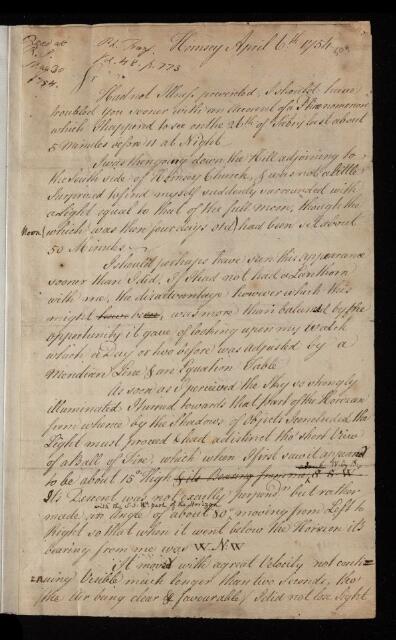 Read at
R.S.
May 30
1754.
Pd. Tray
Vol. 48. p. 773
Hornsey April 6th. 1754
Had not Illness prevented, I should have
troubled you sooner with an Account of a Phænomenon
which I happend to see on the 26th of Febry last about
5 Minutes before 11 at Night.
I was then going down the Hill adjoining to
the South side of Hornsey Church, & was not a little
Surprized to find myself suddenly surrounded with
a Light equal to that of the full moon, though the
Moon (which was then four days old) had been set about
50 Minutes.
I should perhaps have seen this appearance
sooner than I did, if I had not had a Lanthorn
with me, the disadvantage however which this
might have been, was more than balancd by the
opportunity it gave of looking upon my Watch
which a Day or two before was adjusted by a
Meridian Line & an Equation Table
As soon as I perceived the Sky so strongly
illuminated I turned towards that part of the Horizon
from whence by the Shadows of Objects I concluded the
Light must proceed & had a distinct tho' short View
of a Ball of Fire, which when I first saw it appeard
to be about 15° high & its Bearing from me
Its Descent was not exactly perpendr but rather
made an angle of about 80° moving from Left to
with the S. S. Wt. part of the Horizon
Right so that when it went below the Horizon its
bearing from me was W.N.W
It moved with a great Velocity not conti=
=nuing Visible much longer than two Seconds, tho'
(the Air being clear & favourable) I did not lose sight